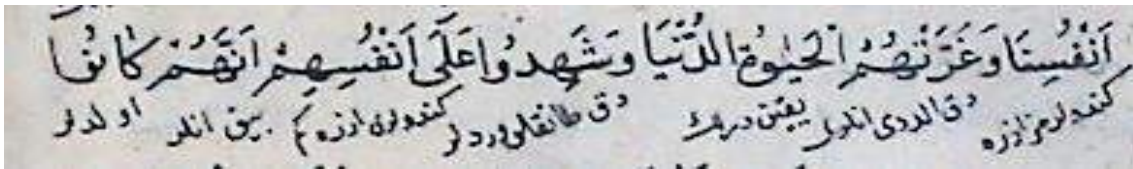 اَنْفُسِنَا وَغَرَّتْهُمُ الْحَيٰوةُ الدُّنْيَا وَشَهِدُوا عَلٰى اَنْفُسِهِمْ اَنَّهُمْ كَانُوا
كندولرمز ازره دق الددى انلرى يقين درلك دق طانقلق ويرديلر كندولرى ازره كم بيق انلر اولدلر